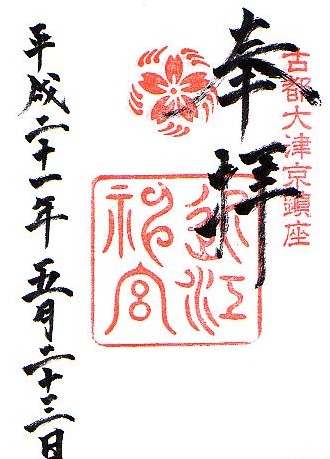 古都大津京鎮座
奉拝
近江神宮
平成二十一年五月二十三日